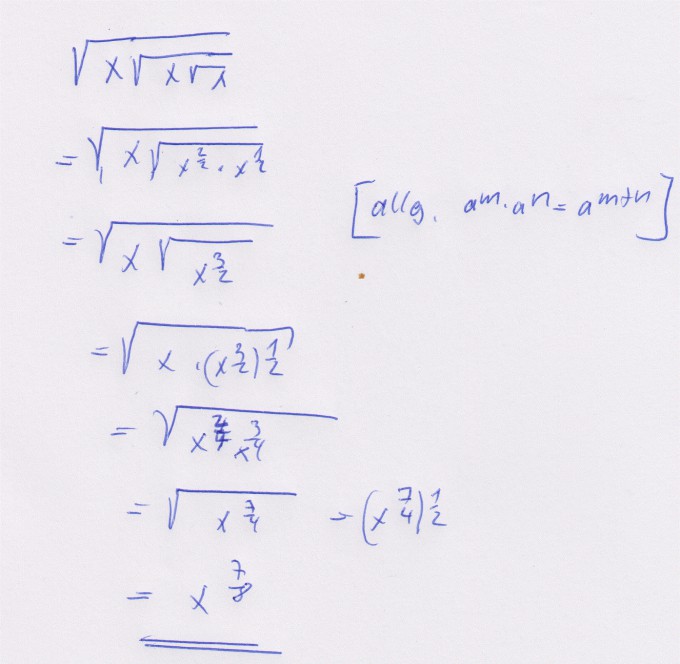 √(x√(x√x))
= √(x√(x^(2/2) · x^(1/2)))
[allg. a^m · a^n = a^(m+n)]
= √(x√(x^(3/2)))
= √(x · (x^(3/2))^(1/2))
= √(x^(4/4) x^(3/4))
= √(x^(7/4)) = (x^(7/4))^(1/2)
= x^(7/8)